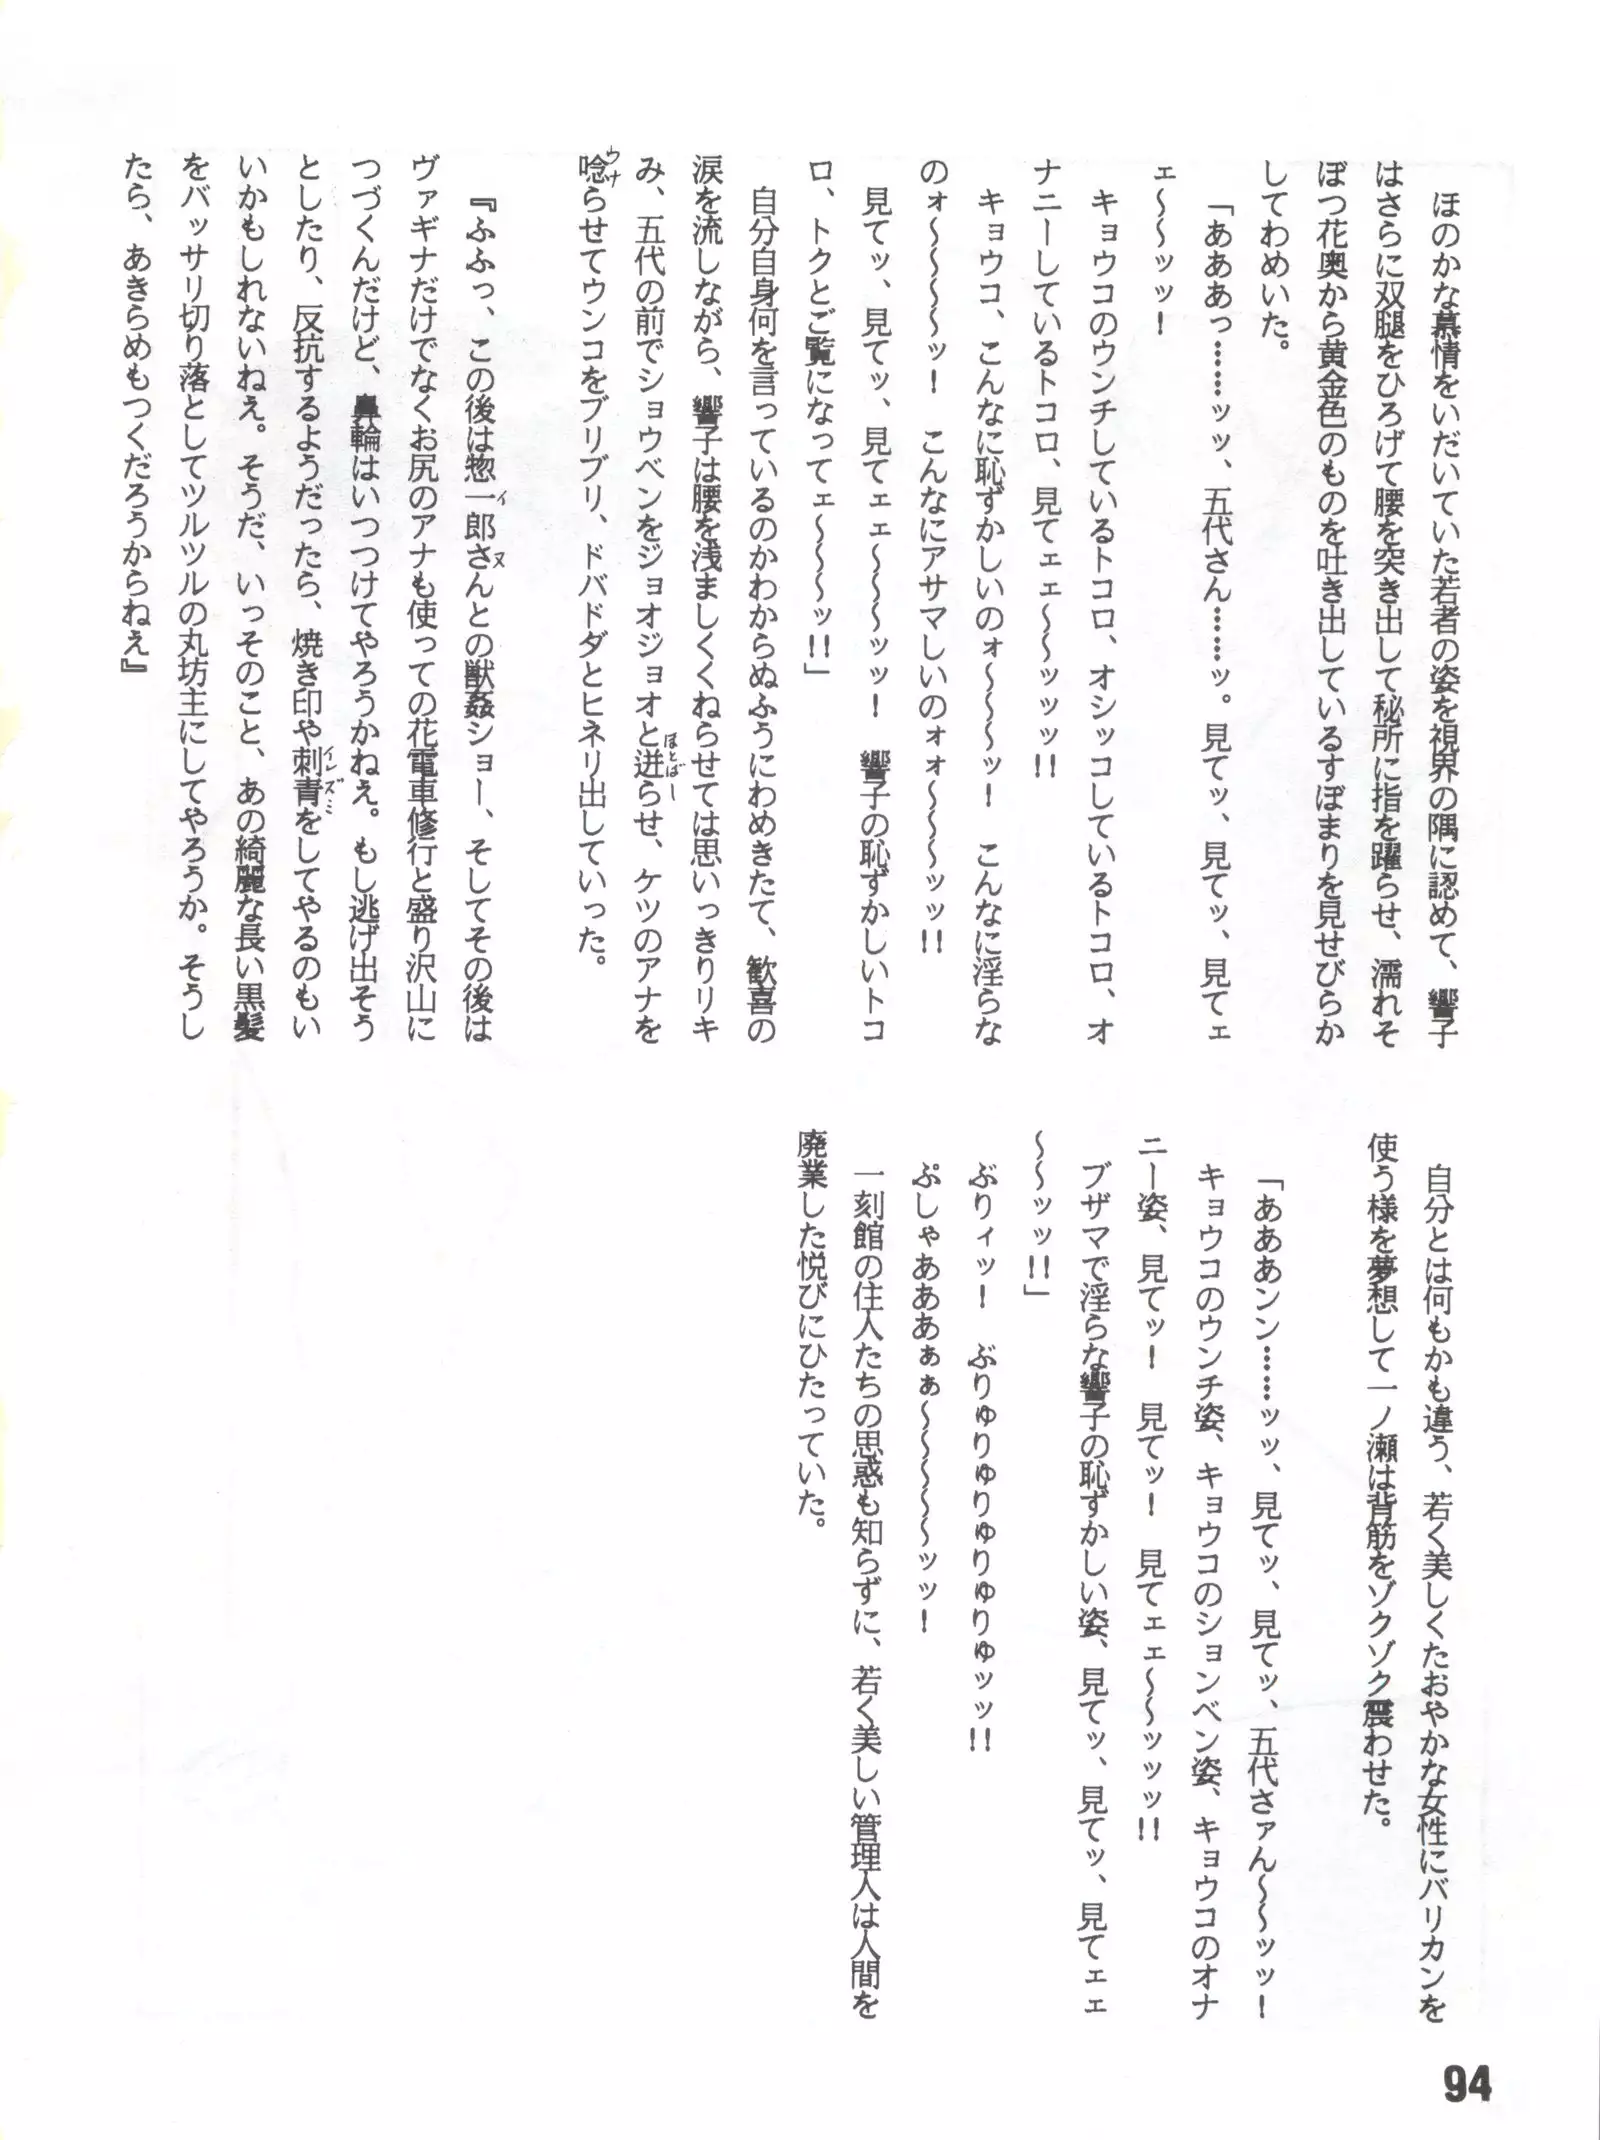 ほのかな慕情をいだいていた若者の姿を視界の隅に認めて、響子
はさらに双腿をひろげて腰を突き出して秘所に指を躍らせ、濡れそ
ぼつ花奥から黄金色のものを吐き出しているすぼまりを見せびらか
してわめいた。
「あああっ……ッッ、五代さん……ッ。見てッ、見てッ、見てェ
ェ～～ッッ！
キョウコのウンチしているトコロ、オシッコしているトコロ、オ
ナニーしているトコロ、見てェェ～～ッッッ!!
キョウコ、こんなに恥ずかしいのォ～～～ッ！　こんなに淫らな
のォ～～～～ッ！　こんなにアサマしいのォォ～～～ッッ!!
見てッ、見てッ、見てェェ～～～ッッ！　響子の恥ずかしいトコ
ロ、トクとご覧になってェ～～～ッ!!」
自分自身何を言っているのかわからぬふうにわめきたて、歓喜の
涙を流しながら、響子は腰を浅ましくくねらせては思いっきりリキ
み、五代の前でショウベンをジョオジョオと迸らせ、ケツのアナを
唸らせてウンコをブリブリ、ドバドダとヒネリ出していった。
『ふふっ、この後は惣一郎さんとの獣姦ショー、そしてその後は
ヴァギナだけでなくお尻のアナも使っての花電車修行と盛り沢山に
つづくんだけど、鼻輪はいつつけてやろうかねえ。もし逃げ出そう
としたり、反抗するようだったら、焼き印や刺青をしてやるのもい
いかもしれないねえ。そうだ、いっそのこと、あの綺麗な長い黒髪
をバッサリ切り落としてツルツルの丸坊主にしてやろうか。そうし
たら、あきらめもつくだろうからねえ』
自分とは何もかも違う、若く美しくたおやかな女性にバリカンを
使う様を夢想して一ノ瀬は背筋をゾクゾク震わせた。
「あああンン……ッッ、見てッ、見てッ、五代さァん～～ッッ！
キョウコのウンチ姿、キョウコのションベン姿、キョウコのオナ
ニー姿、見てッ！　見てッ！　見てェェ～～ッッッ!!
ブザマで淫らな響子の恥ずかしい姿、見てッ、見てッ、見てェェ
～～ッッ!!」
ぶりィッ！　ぶりゅりゅりゅりゅりゅッッ!!
ぷしゃあああぁぁ～～～～～ッッ！
一刻館の住人たちの思惑も知らずに、若く美しい管理人は人間を
廃業した悦びにひたっていた。
94